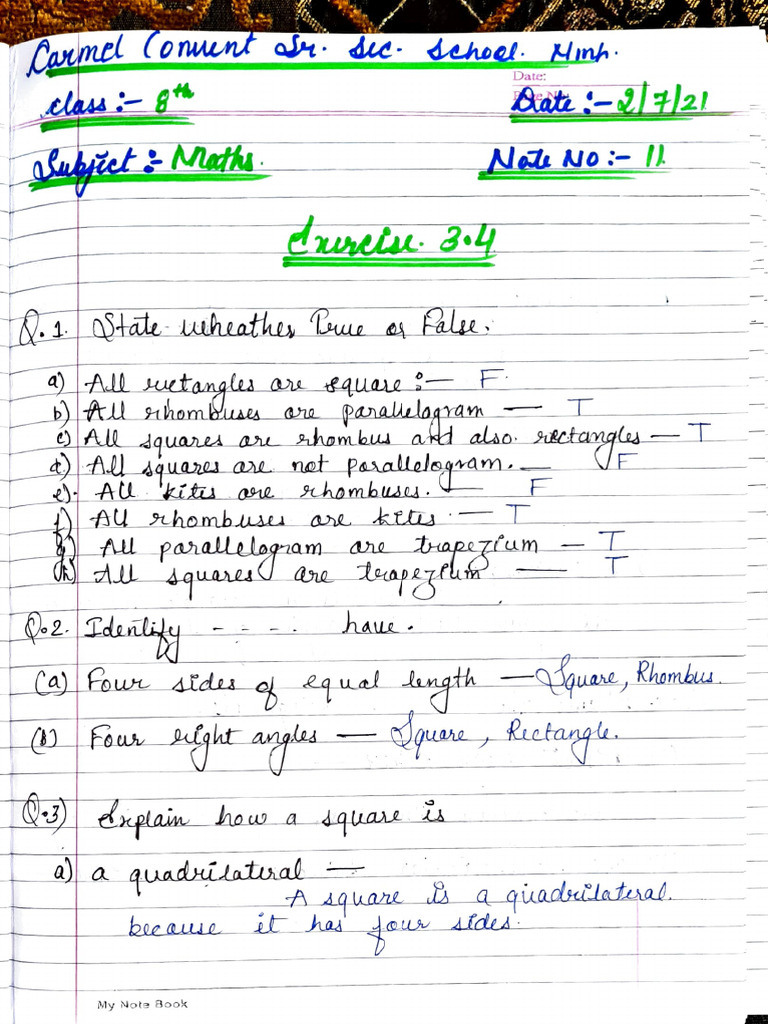 Carmel Convent Sr. Sec. School. Nmh.
Date:
Class :- 8th
Date :- 2/7/21
Subject :- Maths.
Note No :- 11.
Exercise. 3.4
Q.1. State wheather True or False.
a) All rectangles are square :- F.
b) All rhombuses are parallelogram — T
c) All squares are rhombus and also. rectangles — T
d) All squares are not parallelogram. — F
e). All kites are rhombuses. — F
f) All rhombuses are kites — T
g) All parallelogram are trapezium — T
h) All squares are trapezium — T
Q.2. Identify - - - . have.
(a) Four sides of equal length — Square, Rhombus.
(b) Four right angles — Square, Rectangle.
Q.3) Explain how a square is
a) a quadrilateral —
A square is a quadrilateral.
because it has four sides.
My Note Book